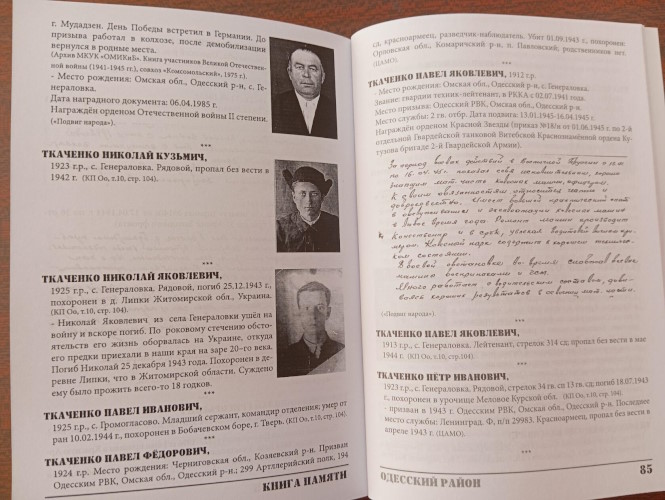 г. Мудадзен. День Победы встретил в Германии. До
призыва работал в колхозе, после демобилизации
вернулся в родные места.
(Архив МКУК «ОМИКиБ». Книга участников Великой Отечествен-
ной войны (1941-1945 гг.), совхоз «Комсомольский», 1975 г.)
- Место рождения: Омская обл., Одесский р-н, с. Ге-
нераловка.
Дата наградного документа: 06.04.1985 г.
Награждён орденом Отечественной войны II степени.
(«Подвиг народа»).
***
ТКАЧЕНКО НИКОЛАЙ КУЗЬМИЧ,
1923 г.р., с. Генераловка. Рядовой, пропал без вести в
1942 г. (КП Оо, т.10, стр. 104).
***
ТКАЧЕНКО НИКОЛАЙ ЯКОВЛЕВИЧ,
1925 г.р., с. Генераловка. Рядовой, погиб 25.12.1943 г.,
похоронен в д. Липки Житомирской обл., Украина.
(КП Оо, т.10, стр. 104).
- Николай Яковлевич из села Генераловки ушёл на
войну и вскоре погиб. По роковому стечению обсто-
ятельств его жизнь оборвалась на Украине, откуда
его предки приехали в наши края на заре 20-го века.
Погиб Николай 25 декабря 1943 года. Похоронен в де-
ревне Липки, что в Житомирской области. Суждено
ему было прожить всего-то 18 годков.
***
ТКАЧЕНКО ПАВЕЛ ИВАНОВИЧ,
1925 г.р., с. Громогласово. Младший сержант, командир отделения; умер от
ран 10.02.1944 г., похоронен в Бобачевском боре, г. Тверь. (КП Оо, т.10, стр. 104).
***
ТКАЧЕНКО ПАВЕЛ ФЁДОРОВИЧ,
1924 г.р. Место рождения: Черниговская обл., Козяевский р-н. Призван
Одесским РВК, Омская обл., Одесский р-н.; 299 Артллерийский полк, 194
КНИГА ПАМЯТИ
сд, красноармеец, разведчик-наблюдатель. Убит 01.09.1943 г., похоронен:
Орловская обл., Комаричский р-н, п. Павловский, родственников нет.
(ЦАМО).
***
ТКАЧЕНКО ПАВЕЛ ЯКОВЛЕВИЧ, 1912 г.р.
- Место рождения: Омская обл., Одесский р-н, с. Генераловка.
Звание: гвардии техник-лейтенант, в РККА с 02.07.1941 года.
Место призыва: Одесский РВК, Омская обл., Одесский р-н.
Место службы: 2 гв. отбр. Дата подвига: 13.01.1945-16.04.1945 г.
Награждён орденом Красной Звезды (приказ №18/н от 01.06.1945 г. по 2-й
отдельной Гвардейской танковой Витебской Краснознамённой ордена Ку-
тузова бригаде 2-й Гвардейской Армии).
За период боевых действий в восточной Пруссии с
по 16.04.45г. показал себя
знающим мат. часть
К своим обязанностям относится честно и
добросовестно. Имея большой практический опыт
в обслуживании и эксплоатации машин
в любое время года. Ремонт машин производит
качественно и в срок,
Колесный парк содержится в хорошем техничес-
ком состоянии.
В боевой обстановке во время снабжал боевые
машины боеприпасами и гсм.
Много работает с водительским составом, доби-
ваясь хороших результатов в освоении мат. части.
(«Подвиг народа»).
***
ТКАЧЕНКО ПАВЕЛ ЯКОВЛЕВИЧ,
1913 г.р., с. Генераловка. Лейтенант, стрелок 314 сд; пропал без вести в мае
1944 г. (КП Оо, т.10, стр.104).
***
ТКАЧЕНКО ПЁТР ИВАНОВИЧ,
1923 г.р., с. Генераловка. Рядовой, стрелок 34 гв. сп 13 гв. сд; погиб 18.07.1943
г., похоронен в урочище Меловое Курской обл. (КП Оо, т.10, стр. 104)
- призван в 1943 г. Одесским РВК, Омская обл., Одесский р-н. Последнее
место службы: Ленинград. Ф, п/п 29983. Красноармеец. Пропал без вести в
апреле 1943 г. (ЦАМО).
***
85
ОДЕССКИЙ РАЙОН